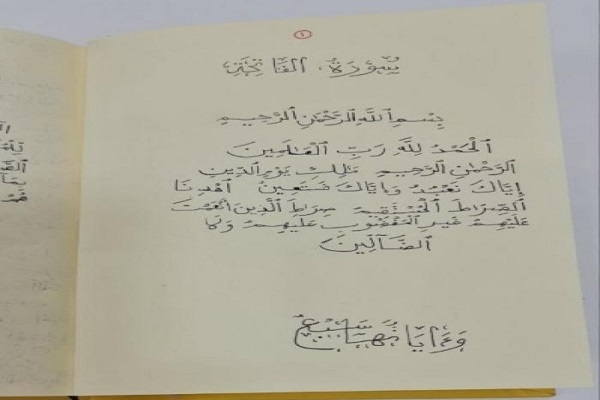 ١
سُورَةُ الفَاتِحَةِ
بِسْمِ اللَّهِ الرَّحْمَٰنِ الرَّحِيمِ
الْحَمْدُ لِلَّهِ رَبِّ الْعَالَمِينَ
الرَّحْمَٰنِ الرَّحِيمِ مَٰلِكِ يَوْمِ الدِّينِ
إِيَّاكَ نَعْبُدُ وَإِيَّاكَ نَسْتَعِينُ اهْدِنَا
الصِّرَاطَ الْمُسْتَقِيمَ صِرَاطَ الَّذِينَ أَنْعَمْتَ
عَلَيْهِمْ غَيْرِ الْمَغْضُوبِ عَلَيْهِمْ وَلَا
الضَّآلِّينَ
وَءَايَاتُهَا سَبْعٌ